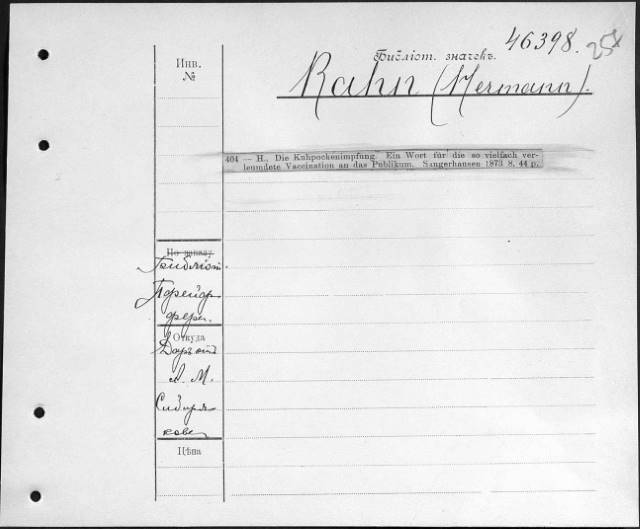 46398.
Инв.
№
Библіот. значекъ.
Rahn (Hermann).
404 — H., Die Kuhpockenimpfung. Ein Wort für die so vielfach ver-
leumdete Vaccination an das Publikum. Sangerhausen 1873 8. 44 p.
Библіот.
Откуда
Даръ отъ
А. М.
Сибиря-
кова
Цѣна